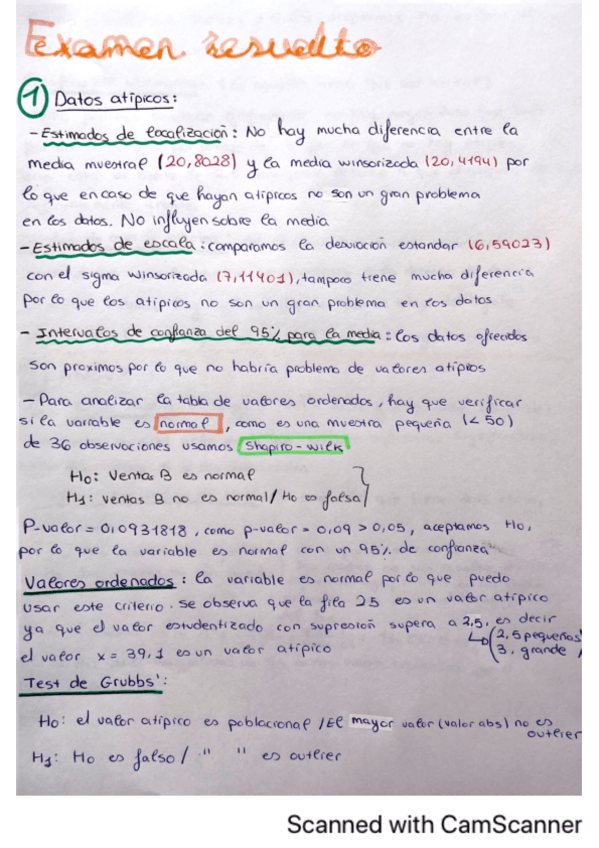 Examen resuelto
1 Datos atípicos:
- Estimados de localización: No hay mucha diferencia entre la
media muestral (20,8028) y la media winsorizada (20,4194) por
lo que en caso de que hayan atípicos no son un gran problema
en los datos. No influyen sobre la media
- Estimados de escala: comparamos la desviación estandar (6,59023)
con el sigma winsorizada (7,11401), tampoco tiene mucha diferencia
por lo que los atípicos no son un gran problema en los datos
- Intervalos de confianza del 95% para la media: los datos ofrecidos
son proximos por lo que no habría problema de valores atípicos
- Para analizar la tabla de valores ordenados, hay que verificar
si la variable es normal, como es una muestra pequeña (< 50)
de 36 observaciones usamos Shapiro-Wilk
Ho: Ventas B es normal
H1: ventas B no es normal / Ho es falsa
P-valor = 0,0931818, como p-valor = 0,09 > 0,05, aceptamos Ho,
por lo que la variable es normal con un 95% de confianza
Valores ordenados: la variable es normal por lo que puedo
usar este criterio. Se observa que la fila 25 es un valor atípico
ya que el valor estudentizado con supresión supera a 2,5, es decir
(2,5 pequeñas
el valor x = 39,1 es un valor atípico
3, grande)
Test de Grubbs':
Ho: el valor atípico es poblacional / El mayor valor (valor abs) no es
outlier
H1: Ho es falso / " " es outlier
Scanned with CamScanner